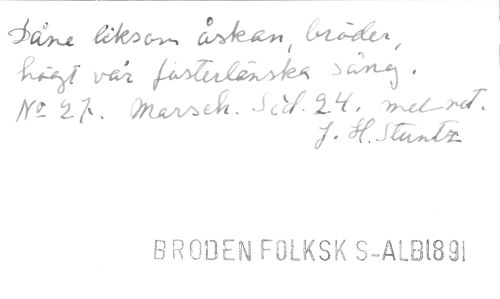 Dåne liksom åskan, bröder,
högt vår fosterländska sång.
No 27. Marsch. Sid. 24. mel not.
J. H. Stuntz
BRODEN FOLKSK S-ALB1891